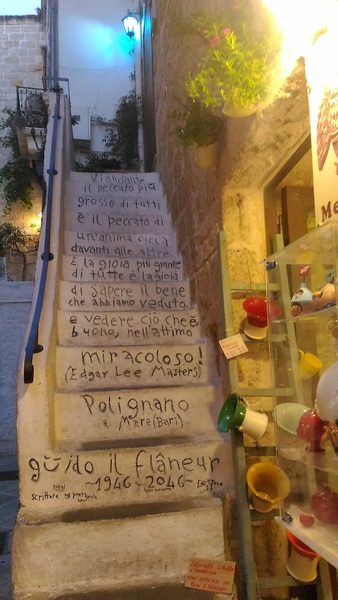 Viandante
il peccato più
grosso di tutti
è il peccato di
un'anima cieca
davanti alle altre
E la gioia più grande
di tutte è la gioia
di sapere il bene
che abbiamo veduto
e vedere ciò che è
buono, nell'attimo
miracoloso!
(Edgar Lee Masters)
Polignano
a Mare (Bari)
guido il flâneur
~1946 ~ 2046~
non
scritture
Me